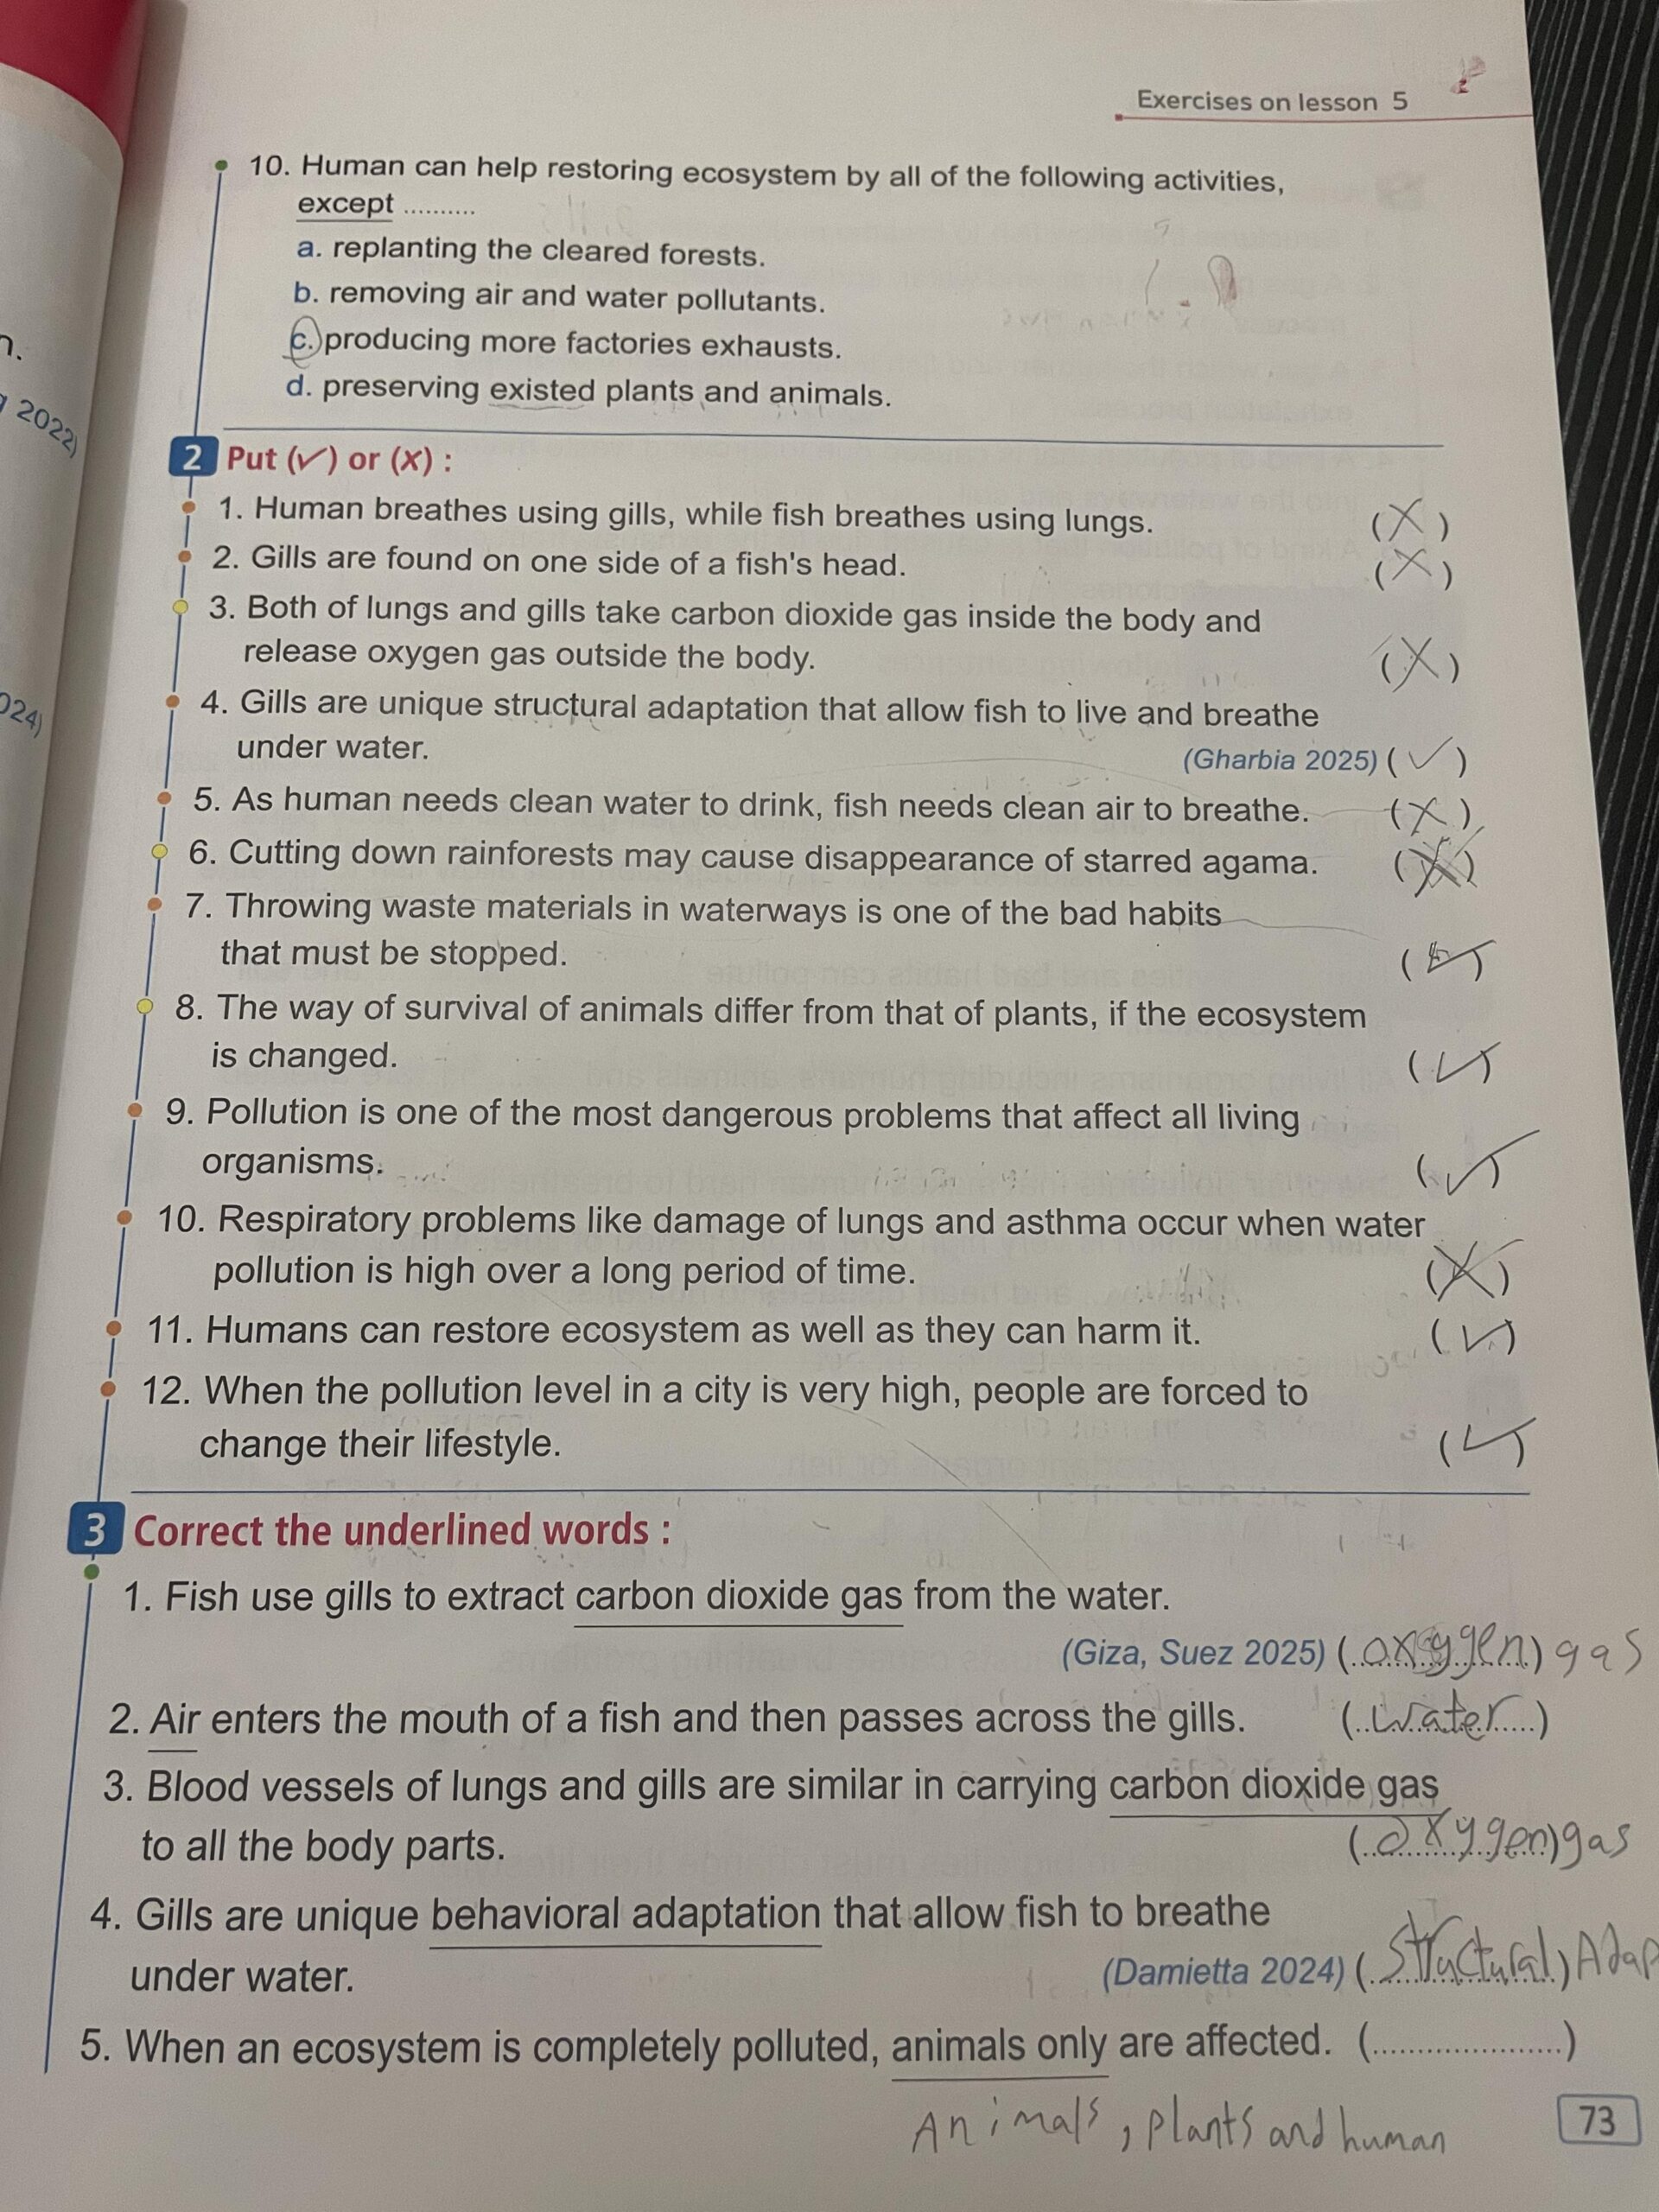 Exercises on lesson 5
10. Human can help restoring ecosystem by all of the following activities,
except ..........
a. replanting the cleared forests.
b. removing air and water pollutants.
c. producing more factories exhausts.
d. preserving existed plants and animals.
2022)
024)
2 Put (✓) or (x) :
1. Human breathes using gills, while fish breathes using lungs. (X)
2. Gills are found on one side of a fish's head. (X)
3. Both of lungs and gills take carbon dioxide gas inside the body and
release oxygen gas outside the body. (X)
4. Gills are unique structural adaptation that allow fish to live and breathe
under water. (Gharbia 2025) (✓)
5. As human needs clean water to drink, fish needs clean air to breathe. (X)
6. Cutting down rainforests may cause disappearance of starred agama.
7. Throwing waste materials in waterways is one of the bad habits
that must be stopped. (✓)
8. The way of survival of animals differ from that of plants, if the ecosystem
is changed. (✓)
9. Pollution is one of the most dangerous problems that affect all living
organisms. (✓)
10. Respiratory problems like damage of lungs and asthma occur when water
pollution is high over a long period of time. (X)
11. Humans can restore ecosystem as well as they can harm it. (✓)
12. When the pollution level in a city is very high, people are forced to
change their lifestyle. (✓)
3 Correct the underlined words :
1. Fish use gills to extract carbon dioxide gas from the water.
(Giza, Suez 2025) (oxygen) gas
2. Air enters the mouth of a fish and then passes across the gills. (water)
3. Blood vessels of lungs and gills are similar in carrying carbon dioxide gas
to all the body parts. (oxygen) gas
4. Gills are unique behavioral adaptation that allow fish to breathe
under water. (Damietta 2024) (Structural) Adap
5. When an ecosystem is completely polluted, animals only are affected. (....................)
Animals, plants and human
73